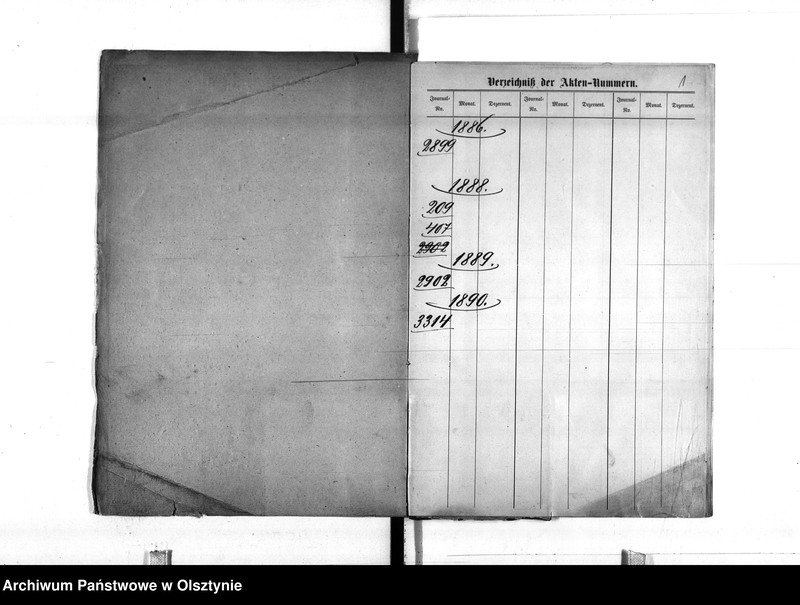 Verzeichniß der Akten-Nummern.
1
Journal-No. Monat. Dezernent. Journal-No. Monat. Dezernent. Journal-No. Monat. Dezernent.
1886.
2899
1888.
209
407
2902
1889.
2902
1890.
3314
Archiwum Państwowe w Olsztynie